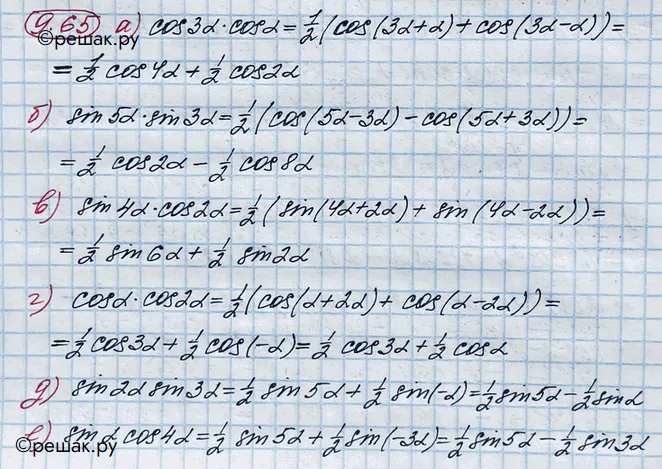 9.65 а) cos3α·cosα=1/2(cos(3α+α)+cos(3α-α))=
=1/2 cos4α+1/2 cos2α
б) sin5α·sin3α=1/2(cos(5α-3α)-cos(5α+3α))=
=1/2 cos2α-1/2 cos8α
в) sin4α·cos2α=1/2(sin(4α+2α)+sin(4α-2α))=
=1/2 sin6α+1/2 sin2α
г) cosα·cos2α=1/2(cos(α+2α)+cos(α-2α))=
=1/2 cos3α+1/2 cos(-α)=1/2 cos3α+1/2 cosα
д) sin2α sin3α=1/2 sin5α+1/2 sin(-α)=1/2 sin5α-1/2 sinα
е) sinα cos4α=1/2 sin5α+1/2 sin(-3α)=1/2 sin5α-1/2 sin3α
©решак.ру
©решак.ру
©решак.ру